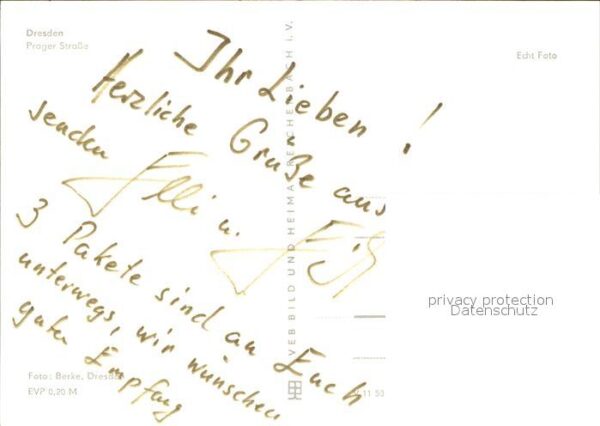 Dresden
Prager Straße
Echt Foto
Ihr Lieben!
Herzliche Grüße aus
senden Elli u.
3 Pakete sind an Euch
unterwegs, wir wünschen
guten Empfang
VEB BILD UND HEIMAT REICHENBACH I. V.
Foto: Berke, Dresden
EVP 0,20 M
11 53
privacy protection
Datenschutz